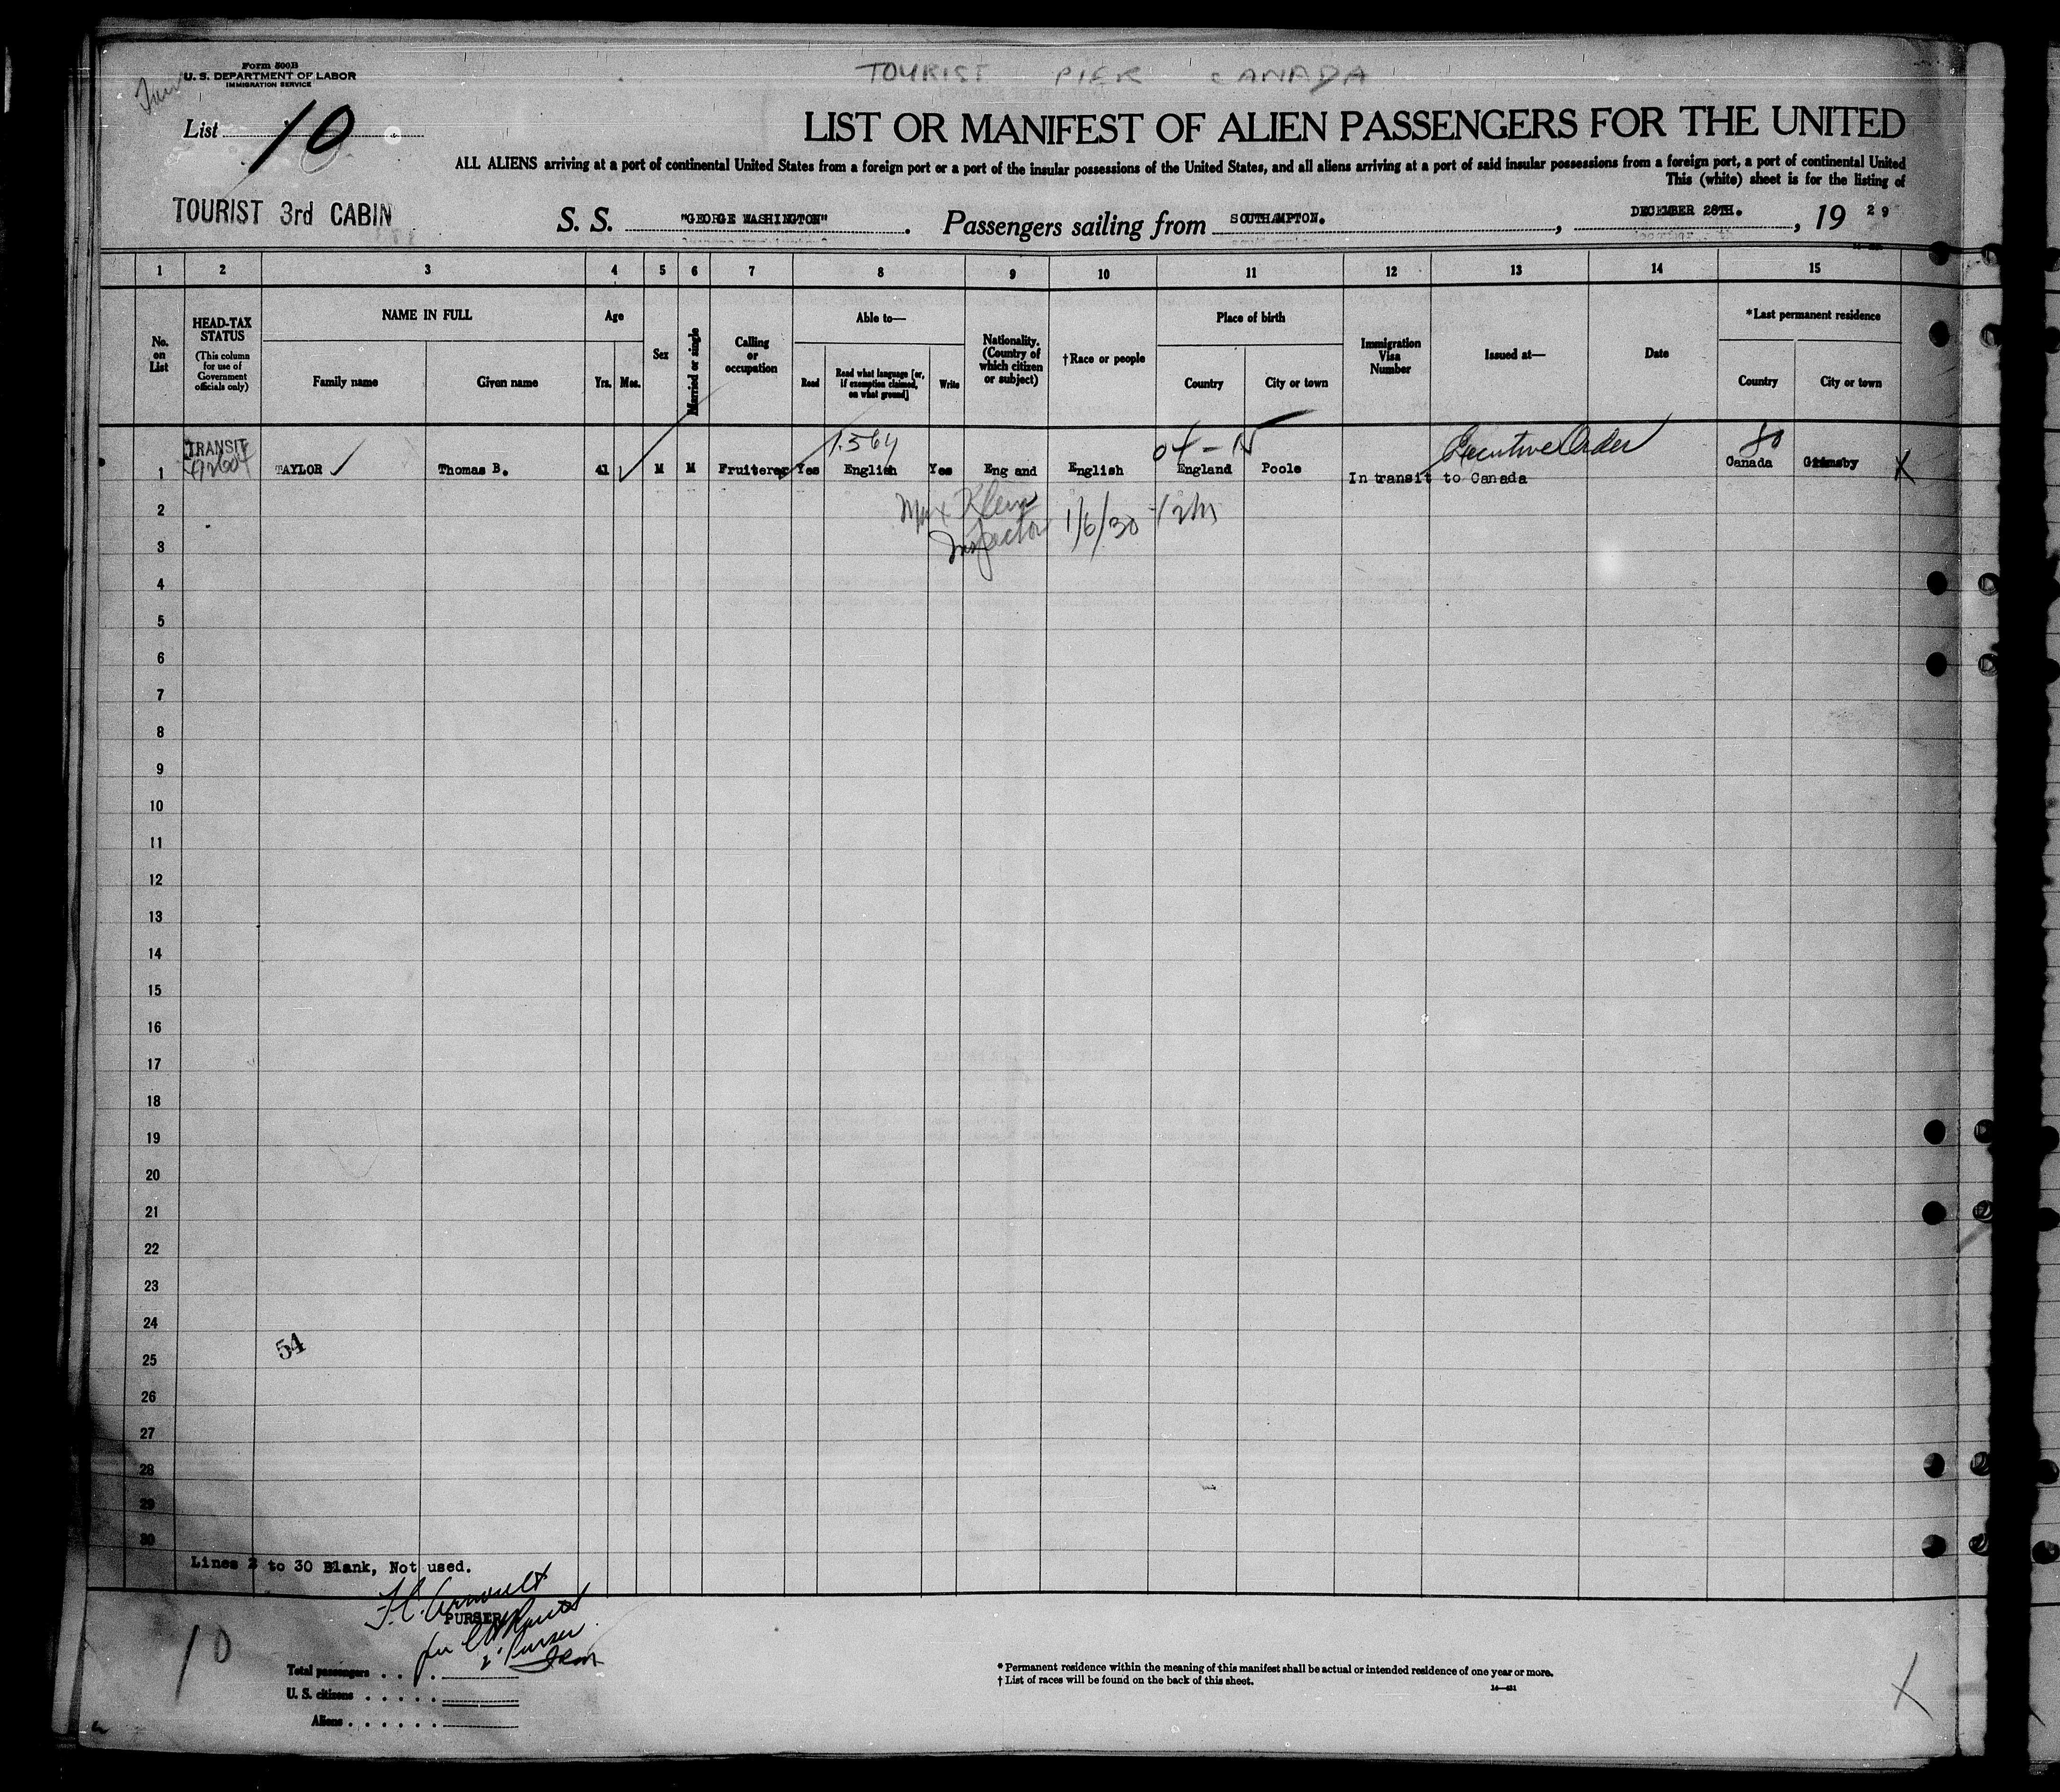 Form 500B
U. S. DEPARTMENT OF LABOR
IMMIGRATION SERVICE
TOURIST PIER CANADA
List 10
LIST OR MANIFEST OF ALIEN PASSENGERS FOR THE UNITED
ALL ALIENS arriving at a port of continental United States from a foreign port or a port of the insular possessions of the United States, and all aliens arriving at a port of said insular possessions from a foreign port, a port of continental United
This (white) sheet is for the listing of
TOURIST 3rd CABIN
S. S. "GEORGE WASHINGTON". Passengers sailing from SOUTHAMPTON. , DECEMBER 28TH. , 19 29
1 2 3 4 5 6 7 8 9 10 11 12 13 14 15
No. on List
HEAD-TAX STATUS
(This column for use of Government officials only)
NAME IN FULL
Family name
Given name
Age
Yrs. Mos.
Sex
Married or single
Calling or occupation
Able to—
Read
Read what language [or, if exemption claimed, on what ground]
Write
Nationality. (Country of which citizen or subject)
†Race or people
Place of birth
Country
City or town
Immigration Visa Number
Issued at—
Date
*Last permanent residence
Country
City or town
TRANSIT 1564 04 - N Executive Order 80
1 TAYLOR Thomas B. 41 M M Fruiterer Yes English Yes Eng and English England Poole In transit to Canada Canada Grimsby X
Max Klein
Inspector 1/6/30
2
3
4
5
6
7
8
9
10
11
12
13
14
15
16
17
18
19
20
21
22
23
24
54
25
26
27
28
29
30
Lines 2 to 30 Blank, Not used.
PURSER
10
Total passengers
U. S. citizens
Aliens
* Permanent residence within the meaning of this manifest shall be actual or intended residence of one year or more.
† List of races will be found on the back of this sheet.
X